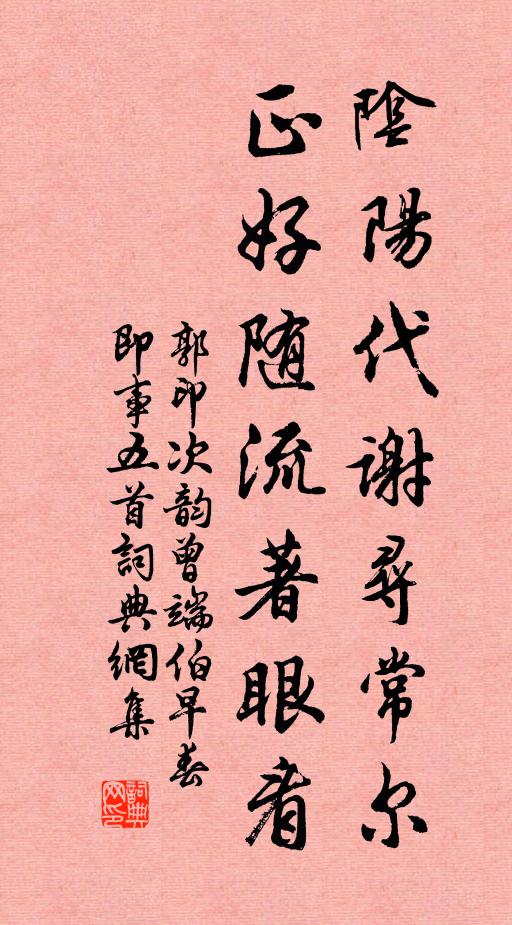 陰陽代謝尋常尔
正好随流著眼看
郭印次韵曾端伯早春
即事五首詞典網集
詞典網印